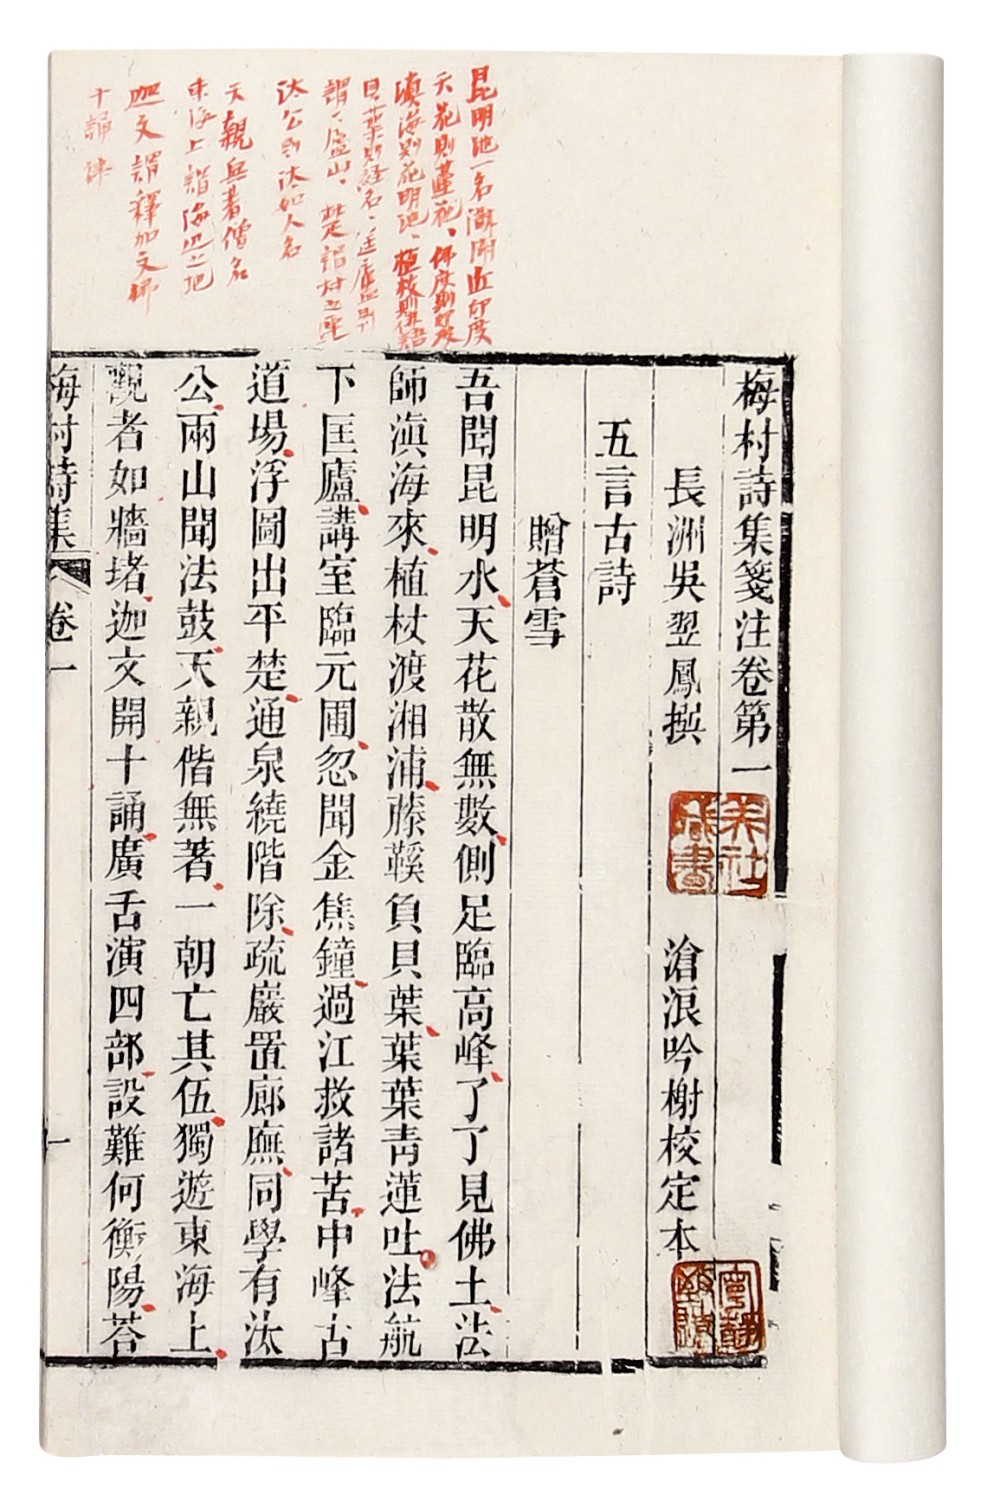 昆明池一名
天花則曇花、佛度則印度
滇海則昆明池、植杖則
貝葉則經名、匡廬則
謂、廬山、楚謂村之
汰公則汰如人名
天親無著僧名
東海上謂海邊之地
迦文謂釋加文佛
十誦律
梅村詩集箋注卷第一
長洲吳翌鳳撰 滄浪吟榭校定本
藏書
寧靜
致遠
五言古詩
贈蒼雪
吾聞昆明水天花散無數側足臨高峰了了見佛土法
師滇海來植杖渡湘浦藤鞵負貝葉葉葉青蓮吐法航
下匡廬講室臨元圃忽聞金焦鐘過江救諸苦中峰古
道場浮圖出平楚通泉繞階除疏巖置廊廡同學有汰
公兩山聞法鼓天親偕無著一朝亡其伍獨遊東海上
觀者如牆堵迦文開十誦廣舌演四部設難何衡陽答
梅村詩集 卷一 一